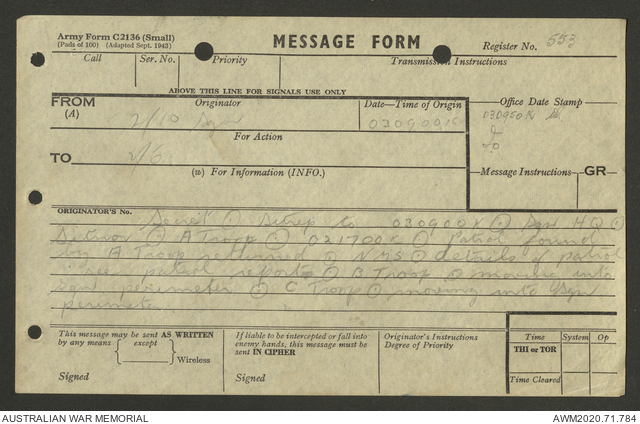 Army Form C2136 (Small)
(Pads of 100) (Adapted Sept. 1943)
MESSAGE FORM
Register No. 553
Call Ser. No. Priority Transmission Instructions
ABOVE THIS LINE FOR SIGNALS USE ONLY
FROM Originator Date—Time of Origin Office Date Stamp
(A) 2/10 Sqn 030900K 030950K
For Action
TO 2/6
(w) For Information (INFO.) Message Instructions GR
ORIGINATOR'S No.
Secret ⊙ Sitrep to 030900K ⊙ Sqn HQ ⊙
⊙ A Troop ⊙ 021700K ⊙ Patrol found
by A Troop returned ⊙ NMS ⊙ details of patrol
see patrol report ⊙ B Troop ⊙ moving into
Sqn perimeter ⊙ C Troop ⊙ moving into Sqn
perimeter
This message may be sent AS WRITTEN
by any means except
Wireless
Signed
If liable to be intercepted or fall into
enemy hands, this message must be
sent IN CIPHER
Signed
Originator's Instructions
Degree of Priority
Time System Op
THI or TOR
Time Cleared
AUSTRALIAN WAR MEMORIAL AWM2020.71.784